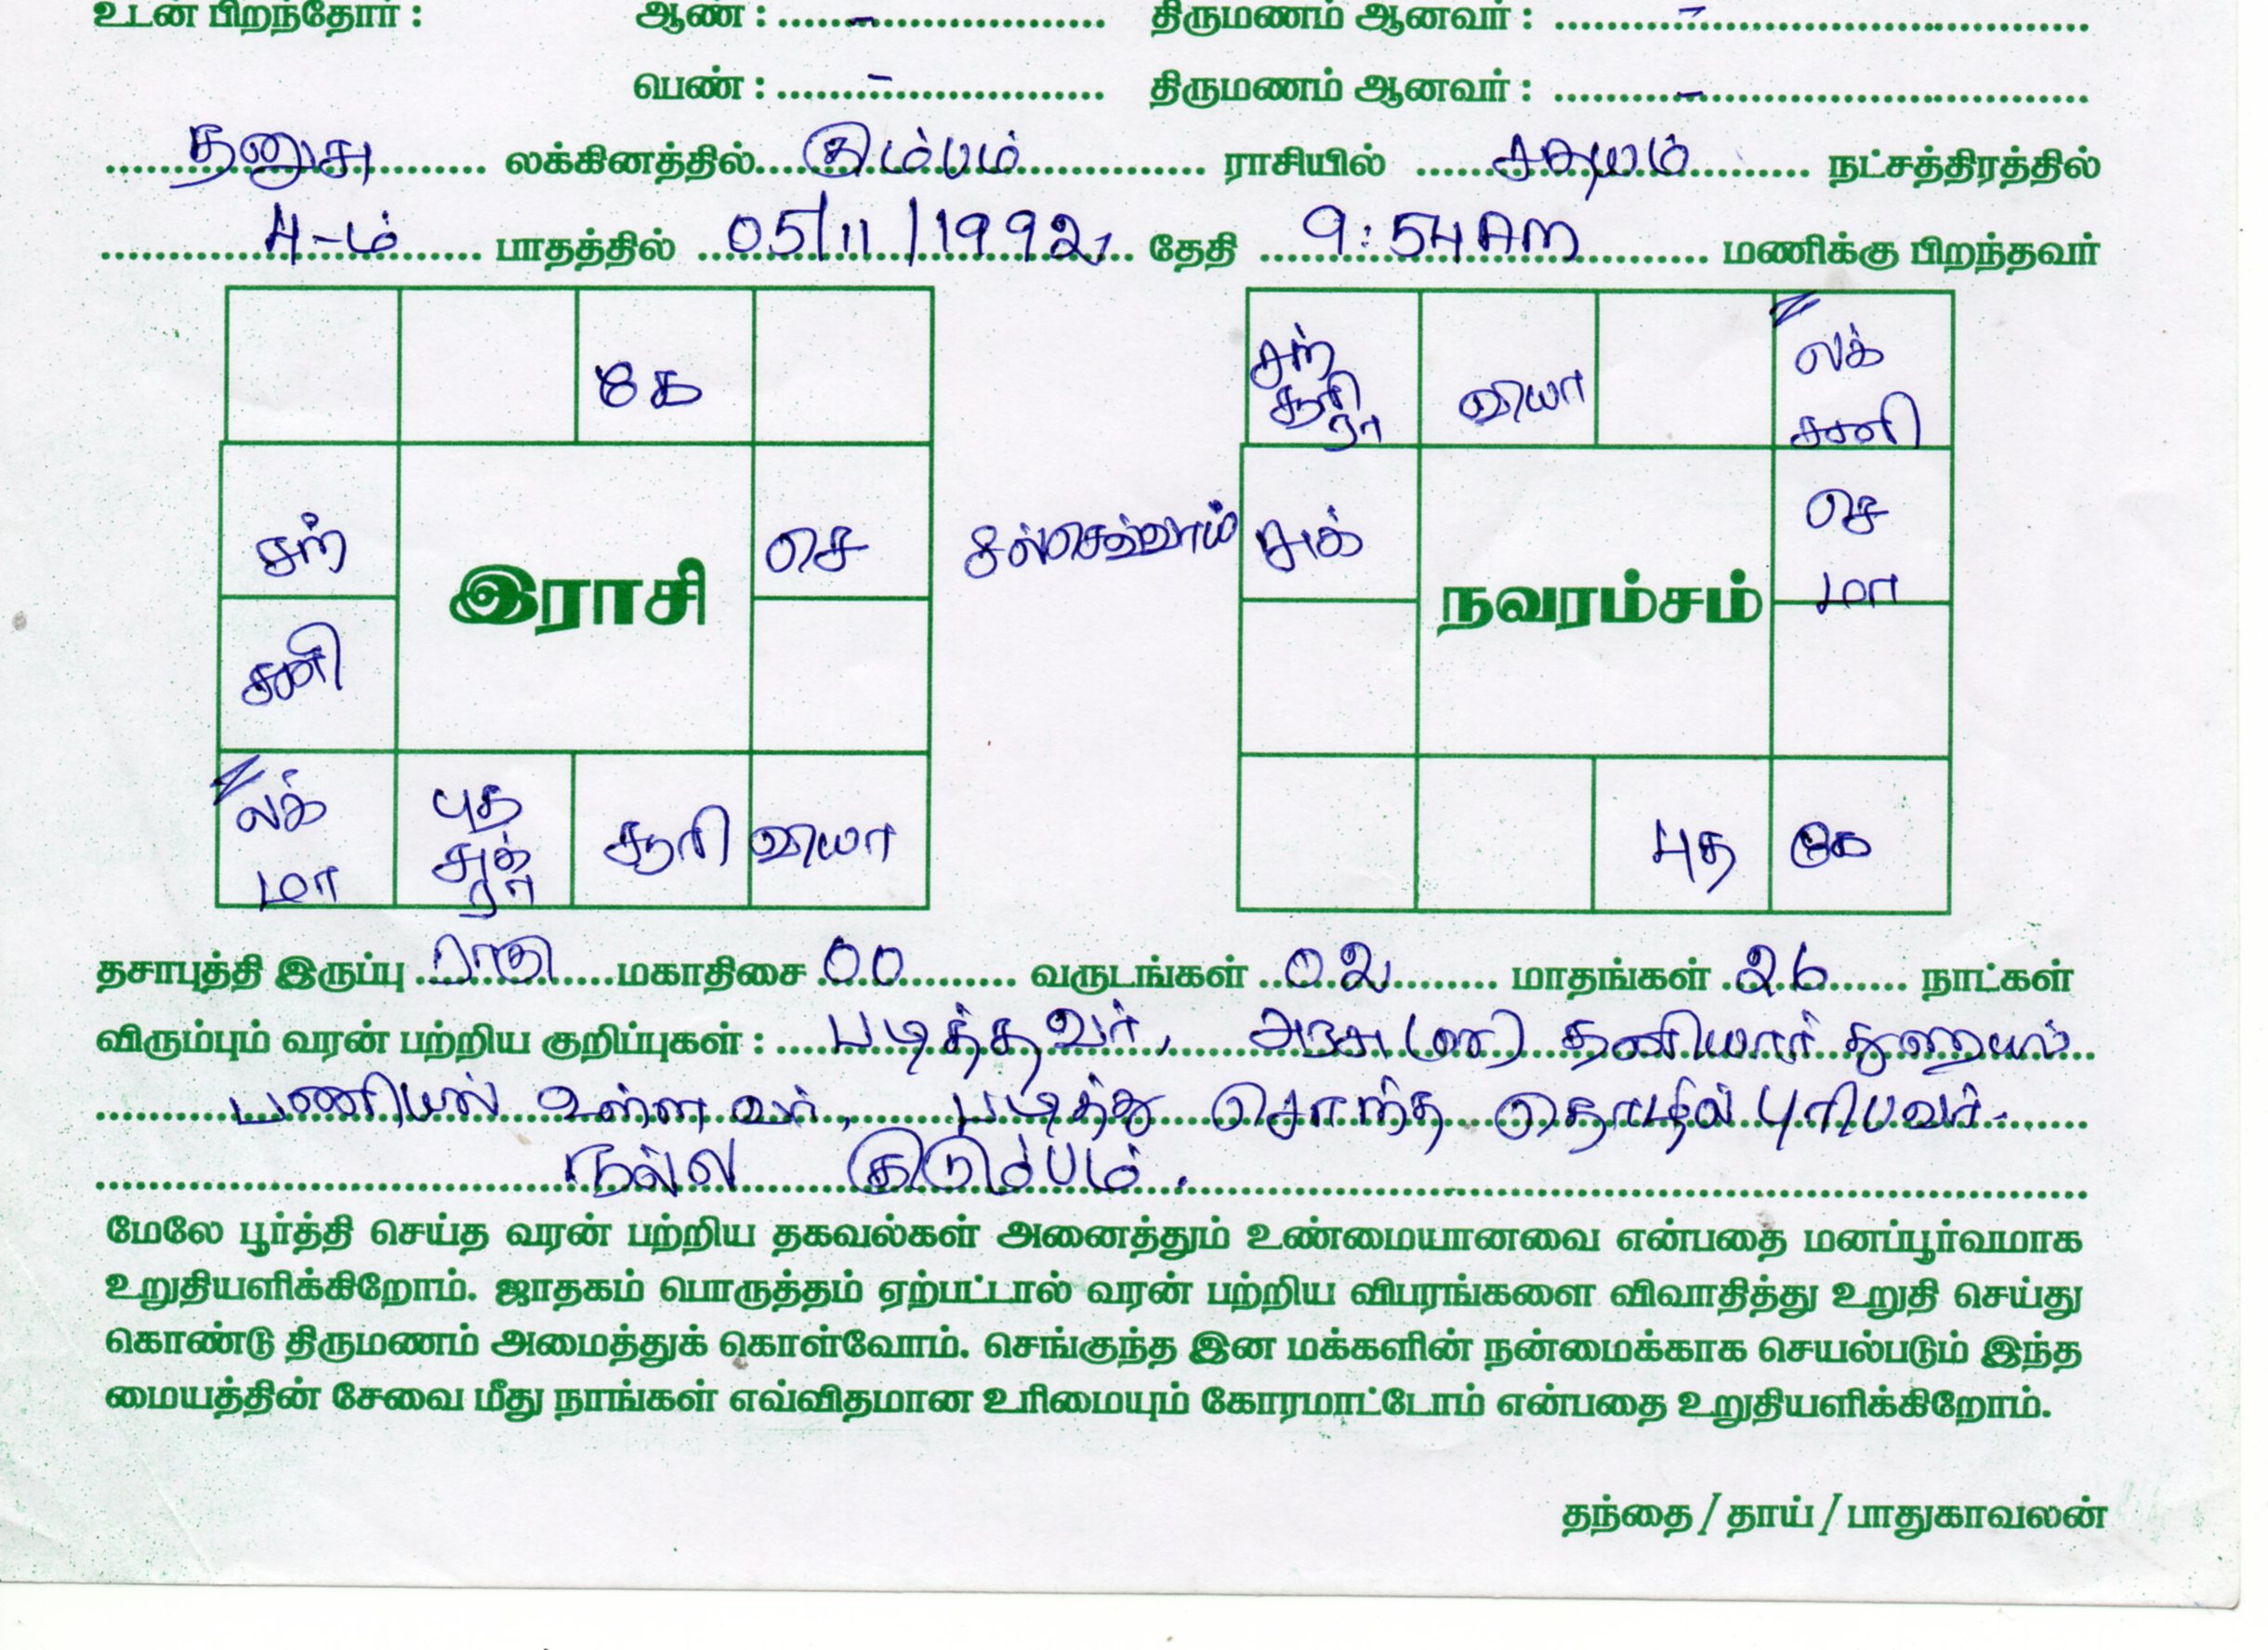 உடன் பிறந்தோர் : ஆண் : .....-..... திருமணம் ஆனவர் : .....-.....
பெண் : .....-..... திருமணம் ஆனவர் : .....-.....
தனுசு லக்கினத்தில் கும்பம் ராசியில் சதயம் நட்சத்திரத்தில்
4-ம் பாதத்தில் 05/11/1992 தேதி 9:54 AM மணிக்கு பிறந்தவர்
கே
சந்
செ
சனி
இராசி
லக்
மா
புத
சுக்
ரா
சூரி
வியா
சுத்செவ்வாய்
சந்
சூரி
ரா
வியா
லக்
சனி
சுக்
செ
மா
நவரம்சம்
புத
கே
தசாபுத்தி இருப்பு ராகு மகாதிசை 00 வருடங்கள் 02 மாதங்கள் 26 நாட்கள்
விரும்பும் வரன் பற்றிய குறிப்புகள் : படித்தவர், அரசு (அ) தனியார் துறையில்
பணியில் உள்ளவர், படித்து சொந்த தொழில் புரிபவர்.
நல்ல குடும்பம்.
மேலே பூர்த்தி செய்த வரன் பற்றிய தகவல்கள் அனைத்தும் உண்மையானவை என்பதை மனப்பூர்வமாக
உறுதியளிக்கிறோம். ஜாதகம் பொருத்தம் ஏற்பட்டால் வரன் பற்றிய விபரங்களை விவாதித்து உறுதி செய்து
கொண்டு திருமணம் அமைத்துக் கொள்வோம். செங்குந்த இன மக்களின் நன்மைக்காக செயல்படும் இந்த
மையத்தின் சேவை மீது நாங்கள் எவ்விதமான உரிமையும் கோரமாட்டோம் என்பதை உறுதியளிக்கிறோம்.
தந்தை / தாய் / பாதுகாவலன்